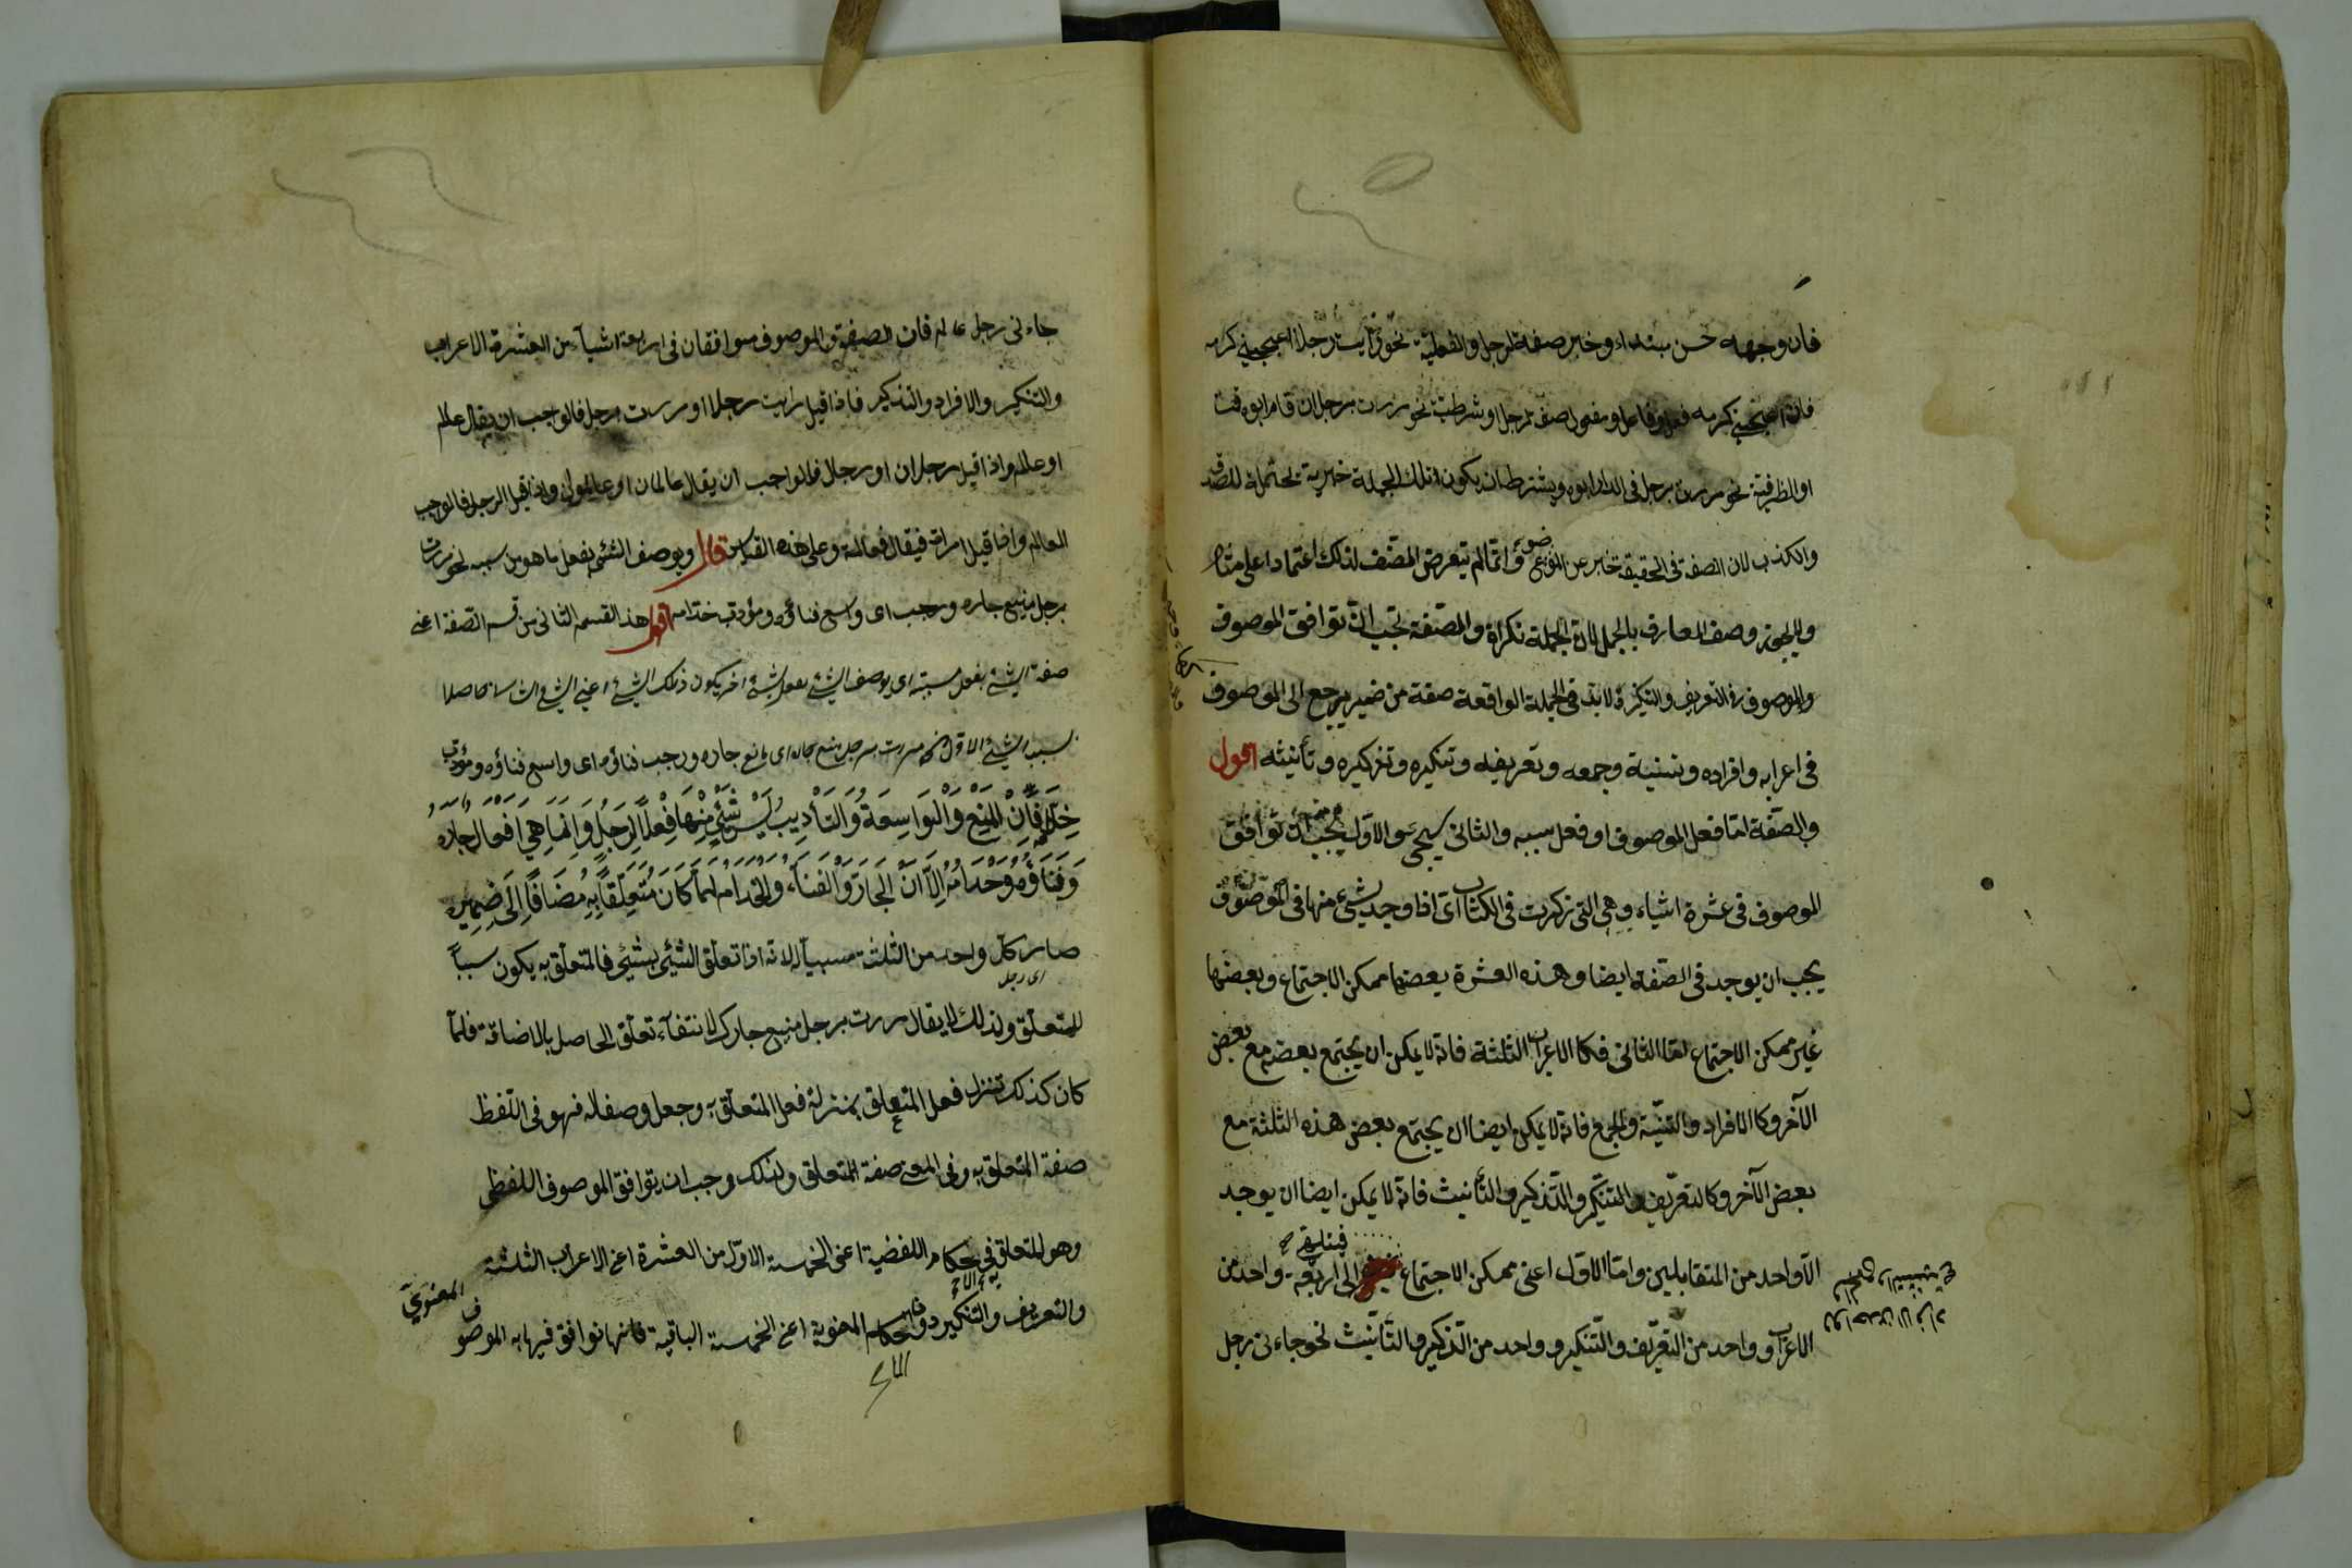 فان وجهه حسن مبتداء وخبر صفة لرجل والفعلية نحو رايت رجلا اعجبني كرمه
فان اعجبني كرمه فعل وفاعل ومفعول صفة لرجل او شرطية نحو مررت برجل ان قام ابوه قمت
او الظرفية نحو مررت برجل فى الدار ابوه ويشترط ان يكون تلك الجملة خبرية محتملة للصدق
والكذب لان الصفة فى الحقيقة خبر عن الموصوف وانما لم يتعرض المصنف لذلك اعتمادا على مثاله
ولا يجوز وصف المعارف بالجمل لان الجملة نكراة والصفة تجب ان توافق الموصوف
والموصوف فى التعريف والتنكير ولا بد فى الجملة الواقعة صفة من ضمير يرجع الى الموصوف
فى اعرابه وافراده وتثنية وجمعه وتعريفه وتنكيره وتذكيره وتأنيثه اقول
والصفة اما فعل الموصوف او فعل سببه والثانى سيجئ والاول يجب ان توافق
الموصوف فى عشرة اشياء وهى التى ذكرت فى الكتاب اى اذا وجد شئ منها فى الموصوف
يجب ان يوجد فى الصفة ايضا وهذه العشرة بعضها ممكن الاجتماع وبعضها
غير ممكن الاجتماع اما الثانى فكالاعراب الثلثة فانه لا يمكن ان يجتمع بعضه مع بعض
الآخر وكالافراد والتثنية والجمع فانه لا يمكن ايضا ان يجتمع بعض هذه الثلثة مع
بعض الآخر وكالتعريف والتنكير والتذكير والتأنيث فانه لا يمكن ايضا ان يوجد
الا واحد من المتقابلين واما الاول اعنى ممكن الاجتماع الى اربعة واحد من
الاعراب وواحد من التعريف والتنكير وواحد من التذكير والتأنيث نحو جاءنى رجل
جاءنى رجل عالم فان الصفة والموصوف موافقان فى اربعة اشياء من العشرة الاعراب
والتنكير والافراد والتذكير فاذا قيل رايت رجلا او مررت برجل فالواجب ان يقال عالم
او عالما واذا قيل رجلان او رجلا فالواجب ان يقال عالمان او عالمون واذا قيل الرجل فالواجب
العالم واذا قيل امراة فيقال عالمة وعلى هذه القياس قال ويوصف الشئ بفعل ما هو من سببه نحو مررت
برجل منيع جاره ورحب اى واسع فناؤه ومؤدب خدامه اقول هذا القسم الثانى من قسم الصفة اعنى
صفة الشئ بفعل مسببه اى يوصف الشئ بفعل شئ اخر يكون ذلك الشئ اعنى الشئ الثانى حاصلا
لسبب الشئ الاول نحو مررت برجل منيع جاره اى مانع جاره ورحب فناؤه اى واسع فناؤه ومؤدب
خدامه فان المنع والواسعة والتأديب ليس شئ منها فعلا لرجل وانما هى افعال جاره
وفناؤه وخدامه الا ان الجار والفناء والخدام لما كان متعلقا به مضافا الى ضميره
صار كل واحد من الثلثة مسببا له لانه اذا تعلق الشئ بشئ فالمتعلق به يكون سببا
اى رجل
للمتعلق ولذلك لا يقال مررت برجل منيع جارك لانتفاء تعلق الحاصل بالاضافة فلما
كان كذلك تنزل فعل المتعلق بمنزلة فعل المتعلق به وجعل وصفا له فهو فى اللفظ
صفة المتعلق به وفى المعنى صفة المتعلق ولذلك وجب ان يتوافق الموصوف اللفظى
وهو المتعلق فى احكام اللفظية اعنى الخمسة الاول من العشرة اعنى الاعراب الثلثة
والتعريف والتنكير دون احكام المعنوية اعنى الخمسة الباقية فانها توافق فيها به الموصوف المعنوى